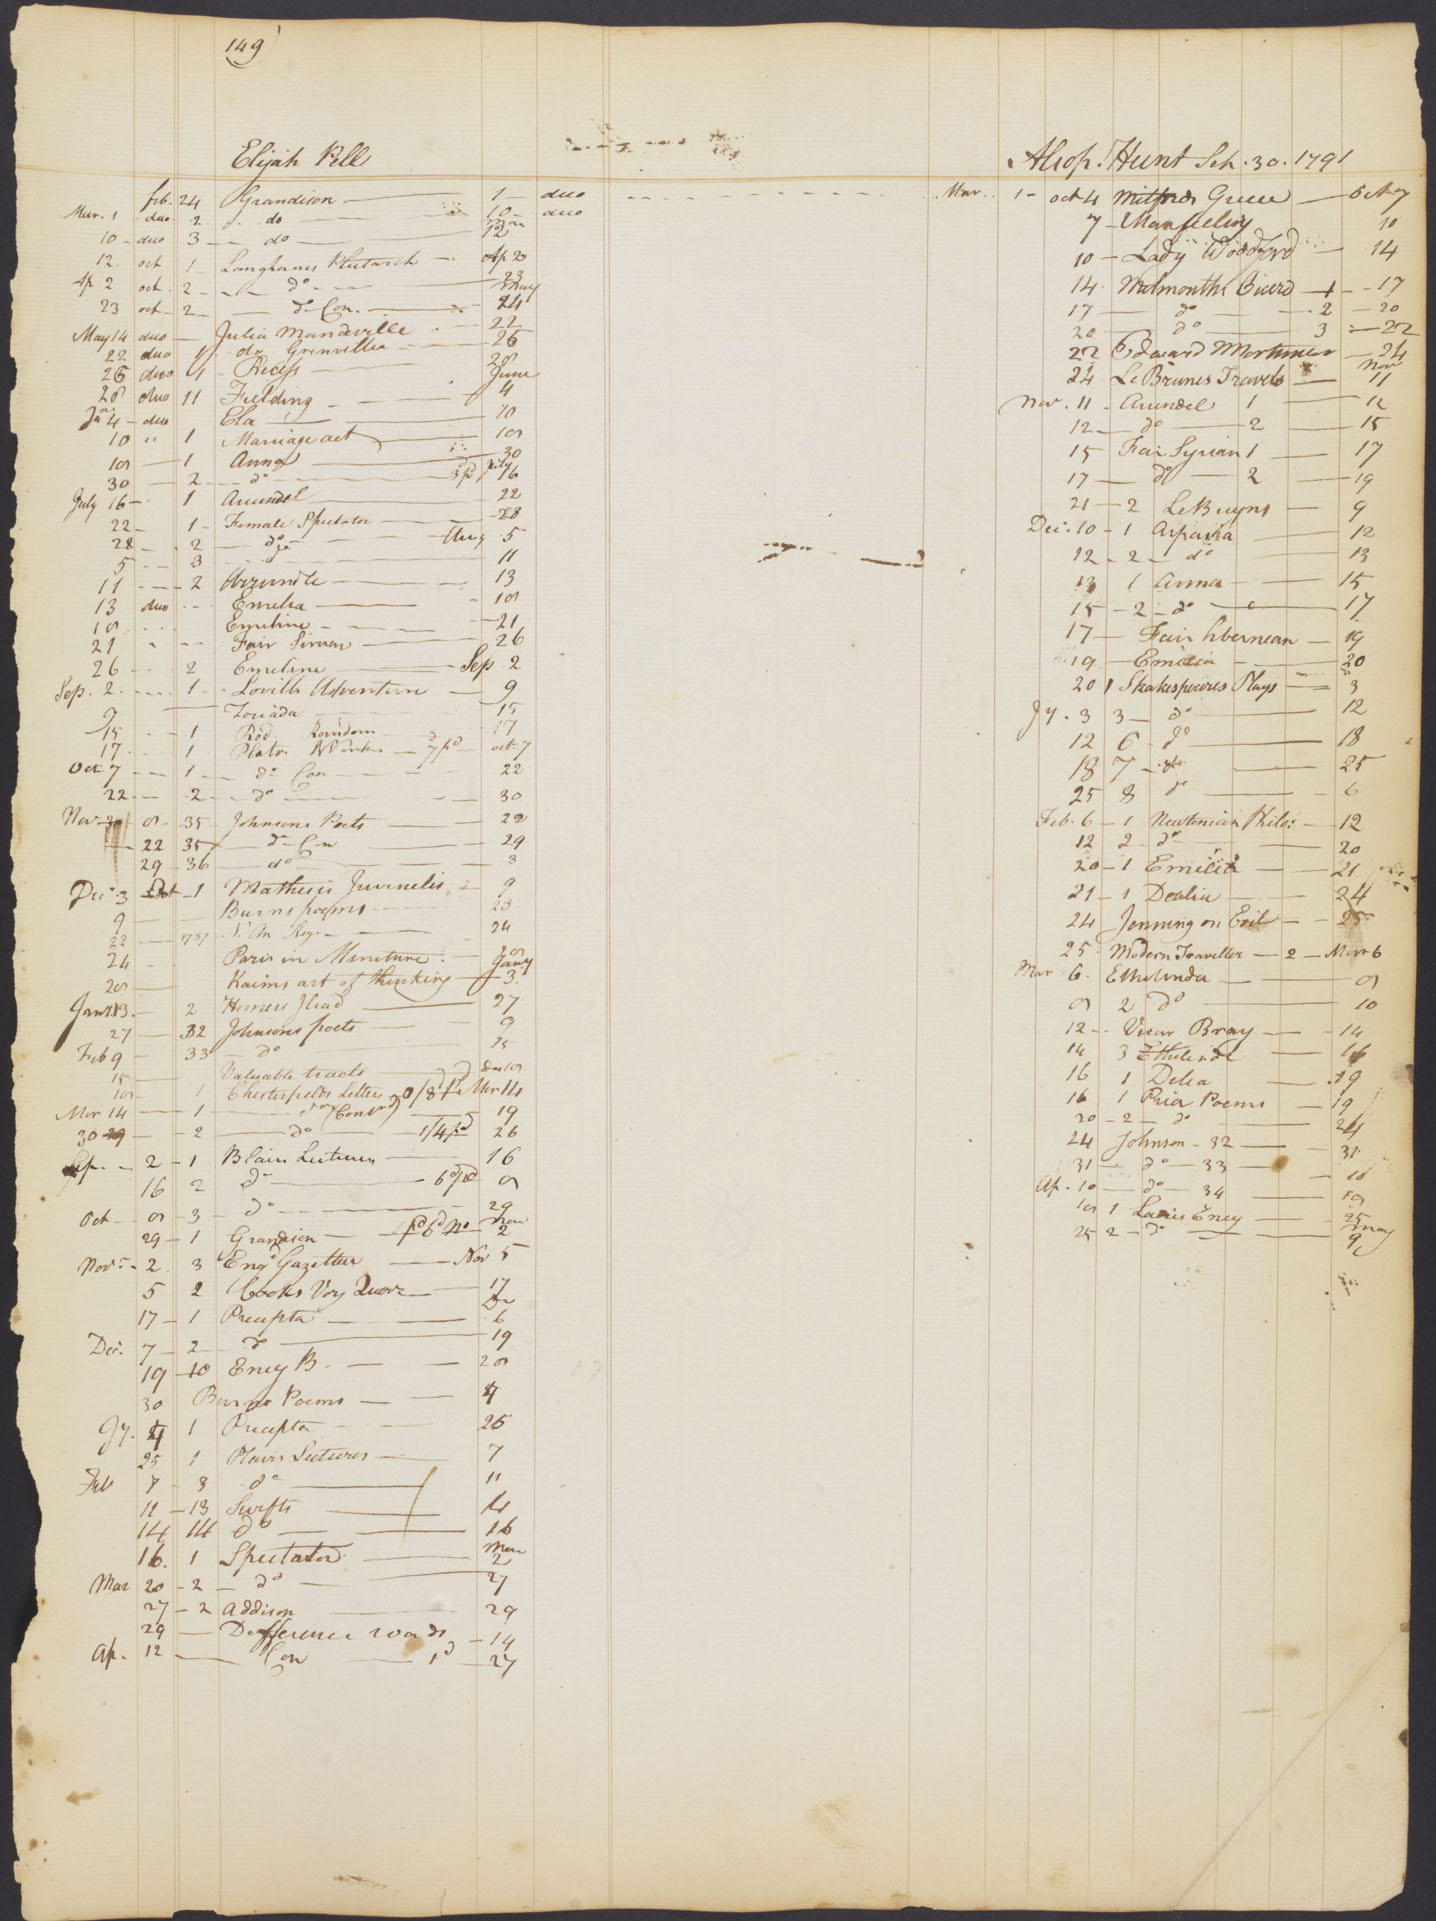 149
Elijah Pell
feb. 24 Grandison 1 duo
Mar. 1 duo 2 do 10 duo
10 duo 3 do Mar 12
12 oct 1 Langhorns Plutarch Ap 20
Ap 2 oct. 2 do 23
23 oct 2 do Con. May 14
May 14 duo Julia Mandeville 22
22 duo 1 do Grenvilla 26
26 duo 1 Recess 28
28 duo 11 Fielding June 4
Jun 4 duo Ela 10
10 " 1 Marriage act 18
18 1 Anna 30
30 2 do 3 pd July 16
July 16 1 Arundel 22
22 1 Female Spectator 28
28 2 do Aug 5
5 3 do 11
11 2 Arrundle 13
13 duo Emelia 18
18 Emeline 21
21 Fair Sirian 26
26 2 Emeline Sep 2
Sep. 2 1 Lovills Adventure 9
9 Zoriada 15
15 1 Rod Random 17
17 1 Platos Works 7 pd oct. 7
Oct 7 1 do Con 22
22 2 do 30
Nov 8 35 Johnsons Poets 22
22 35 do Con 29
29 36 do 3
Dec 3 Oct 1 Mathesis Juvenelis 9
9 Burns poems 23
22 1787 N. An Reg. 24
24 Paris in Miniture 28
28 Kaims art of thinking Jany 3
Jany 13 2 Homers Iliad 27
27 32 Johnsons poets 9
Feb 9 33 do 15
15 Valuable tracts duo 18
18 1 Chesterfields Letters 0/8 pd Mar 14
Mar 14 1 do (Contd) 19
30 29 2 do 1/4 pd 26
Sep. 2 1 Blairs Lectures 16
16 2 do 6d pd 8
Oct 8 3 do 29
29 1 Grandison pd 6d No Nov 2
Novr 2 3 Engd Gazetteer Nov 5
5 2 Cooks Voy 17
17 1 Precepta De 6
Dec. 7 2 do 19
19 10 Ency B. 28
30 Burns Poems 4
Jy. 4 1 Precepta 25
25 1 Blairs Lectures 7
Feb 7 3 do 11
11 13 Swifts 14
14 14 do 16
16. 1 Spectator Mar 2
Mar 20 2 do 27
27 2 Addison 29
29 Difference words 14
Ap. 12 Con 1d 27
Alsop. Hunt Sep. 30. 1791
Mar 1 oct 4 Milford Green Oct 7
7 Man feeling 10
10 Lady Woodford 14
14 Melmouths Cicero 1 17
17 do 2 20
20 do 3 22
22 Edward Mortimer 24
24 Le Brunes Travels Nov 11
Nov. 11 Arundel 1 12
12 do 2 15
15 Fair Syrian 1 17
17 do 2 19
21 2 Le Bruyns 9
Dec. 10 1 Aspasia 12
12 2 do 13
13 1 Anna 15
15 2 do 17
17 Fair hbernean 19
19 Emelia 20
20 1 Shakespeares Plays 3
Jy. 3 3 do 12
12 6 do 18
18 7 do 25
25 8 do 6
Feb. 6 1 Newtonian Philo: 12
12 2 do 20
20 1 Emilia 21
21 1 Dealia 24
24 Jenning on Evil 25
25 Modern Traveller 2 Mar 6
Mar 6. Ethelinda 8
8 2 do 10
12 Vicar Bray 14
14 3 Ethelinde 16
16 1 Delia 19
16 1 Prior Poems 19
20 2 do 24
24 Johnson 32 31
31 do 33 10
Ap. 10 do 34 18
18 1 Ency 25
25 2 do May 9